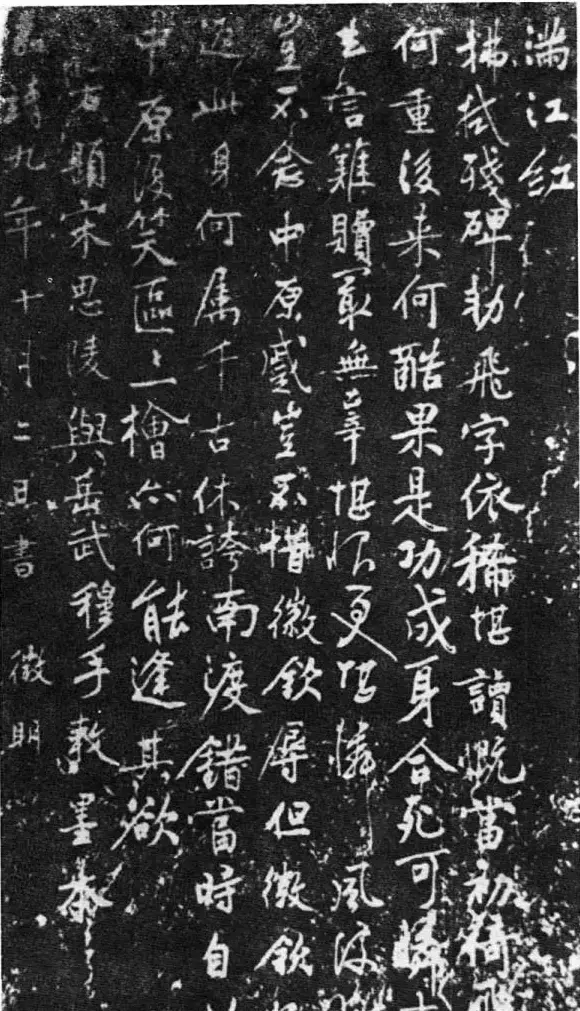 滿江紅
拂拭殘碑勅飛字依稀堪讀慨當初倚飛
何重後来何酷果是功成身合死可憐事
去信難贖最無辜堪恨更堪憐風波獄
豈不念中原蹙豈不惜徽欽辱但徽欽既
返此身何属千古休誇南渡錯當時自怕
中原復笑區〻一檜亦何能逢其欲
題宋思陵與岳武穆手敕墨本
嘉靖九年十月二日書 徵明